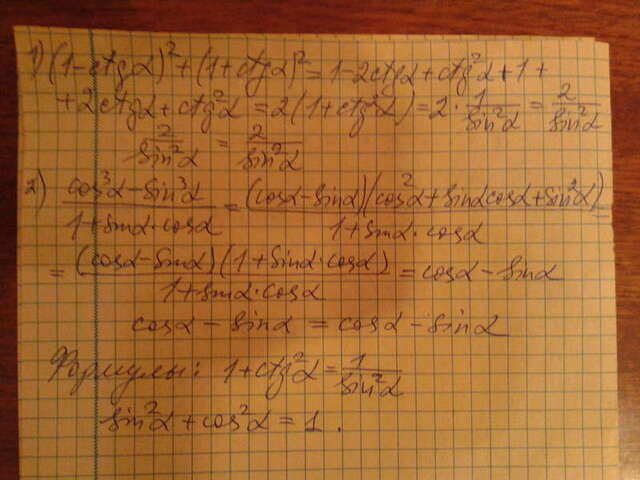 1) (1-ctgα)² + (1+ctgα)² = 1-2ctgα+ctg²α+1+
+2ctgα+ctg²α = 2(1+ctg²α) = 2·1/sin²α = 2/sin²α
2/sin²α = 2/sin²α
2) (cos³α-sin³α)/(1+sinα·cosα) = (cosα-sinα)(cos²α+sinαcosα+sin²α)/(1+sinα·cosα) =
= (cosα-sinα)(1+sinα·cosα)/(1+sinα·cosα) = cosα-sinα
cosα-sinα = cosα-sinα
Формулы: 1+ctg²α = 1/sin²α
sin²α+cos²α = 1.